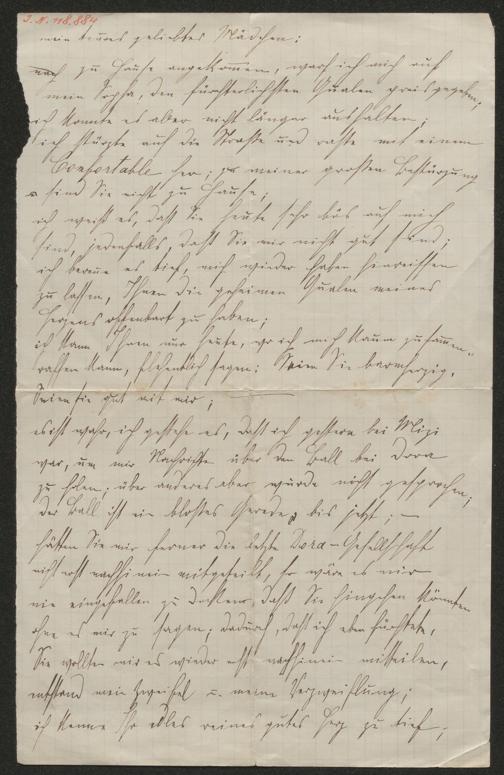 I. N. 118.884
mein teures geliebtes Mädchen:
nach zu Hause angekommen, warf ich mich auf
mein Sopha, den fürchterlichsten Qualen preisgegeben,
ich konnte es aber nicht länger aushalten;
ich stürzte auf die Straße und raste mit einem
Comfortable her; zu meiner großen Bestürzung
sind Sie nicht zu Hause;
ich weiß es, daß Sie heute sehr bös auf mich
sind, jedenfalls, daß Sie mir nicht gut sind;
ich bereue es tief, mich wieder haben hinreissen
zu lassen, Ihnen die geheimen Qualen meines
Herzens offenbart zu haben;
ich kann Ihnen nur heute, wo ich mich kaum zusammen-
raffen kann, flehentlich sagen: Seien Sie barmherzig,
Seien Sie gut mit mir;
es ist wahr, ich gestehe es, daß ich gestern bei Mizi
war, um mir Nachrichten über den Ball bei Dora
zu holen; über anderes aber wurde nicht gesprochen;
der Ball ist ein bloßes Gerede bis jetzt; —
hätten Sie mir ferner die letzte Dora-Gesellschaft
nicht erst nachhinein mitgeteilt, so wäre es mir
nie eingefallen zu denken, daß Sie hingehen könnten
ohne es mir zu sagen; dadurch, daß ich eben fürchtete,
Sie wollten mir es wieder erst nachhinein mitteilen,
entstand mein Zweifel u. meine Verzweiflung;
ich kenne Ihr edles reines gutes Herz zu tief;